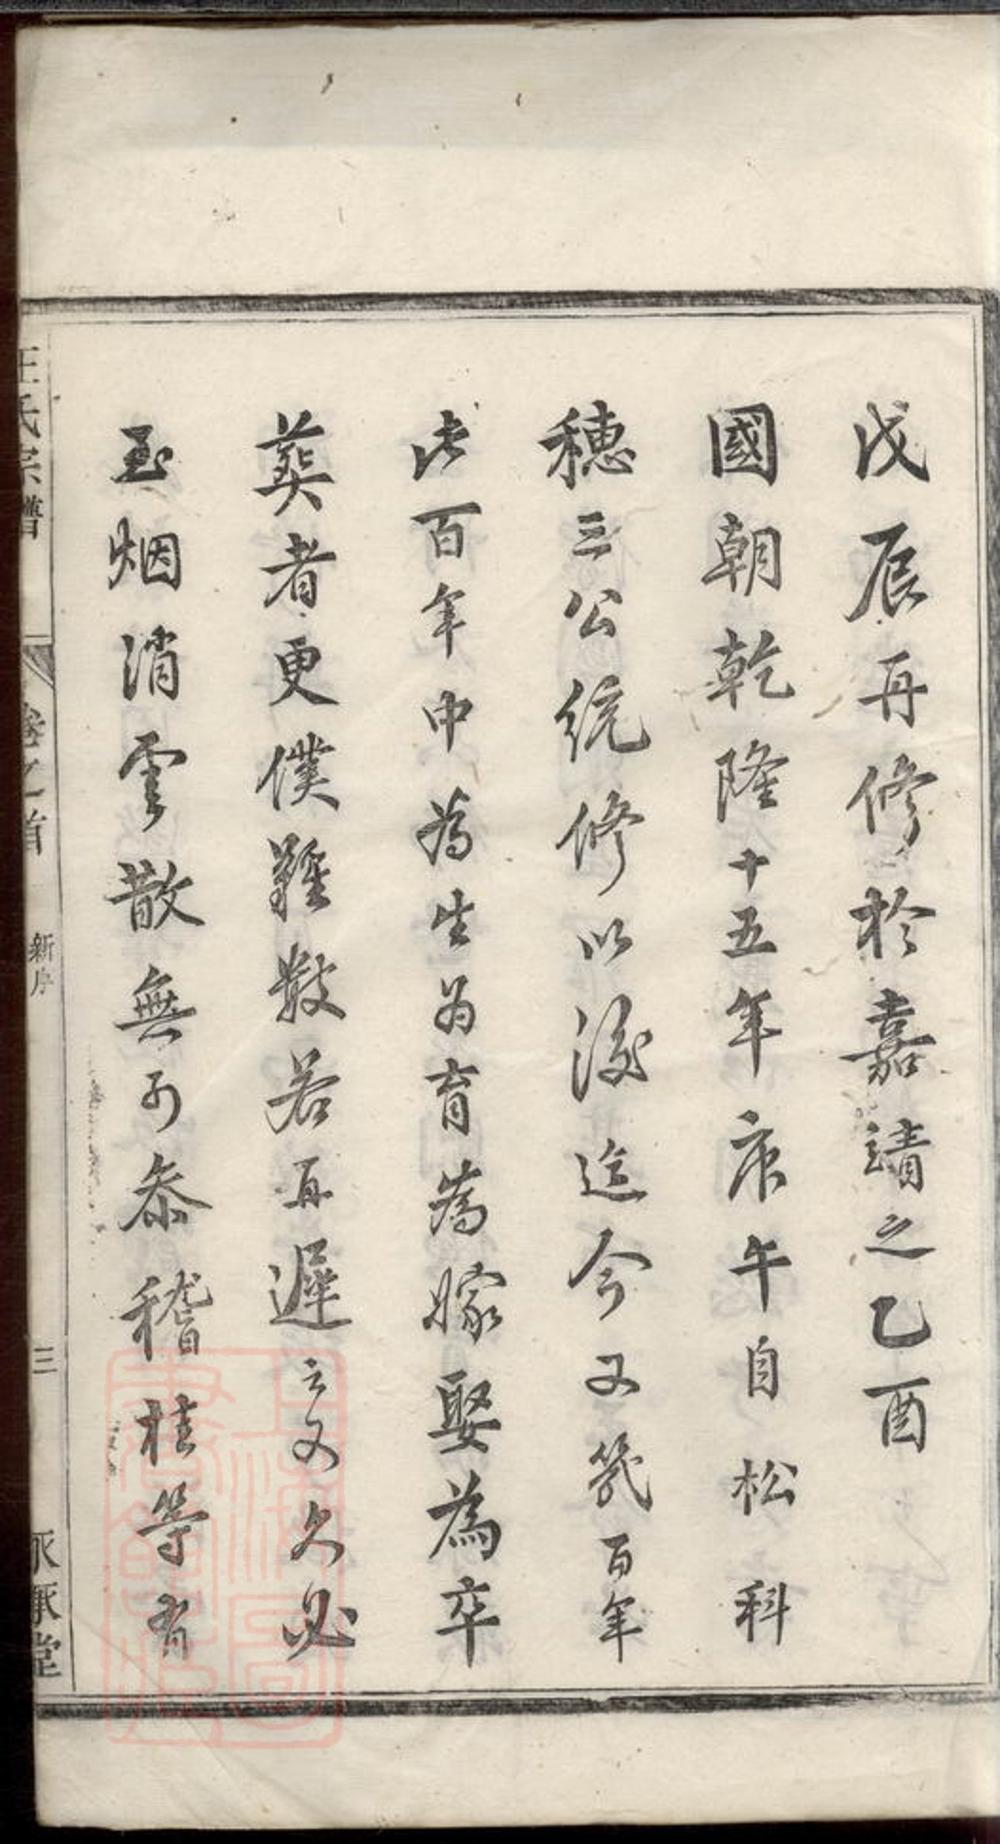 戊辰再修於嘉靖之乙酉
國朝乾隆十五年庚午自松科
穂三公統修以後迄今又幾百年
此百年中為生為育為嫁娶為卒
葬者更僕難數若再遲之又久必
至烟消雲散無可叅稽桂等有
王氏宗譜
卷之首
新序
三
永承堂
上海圖書館藏